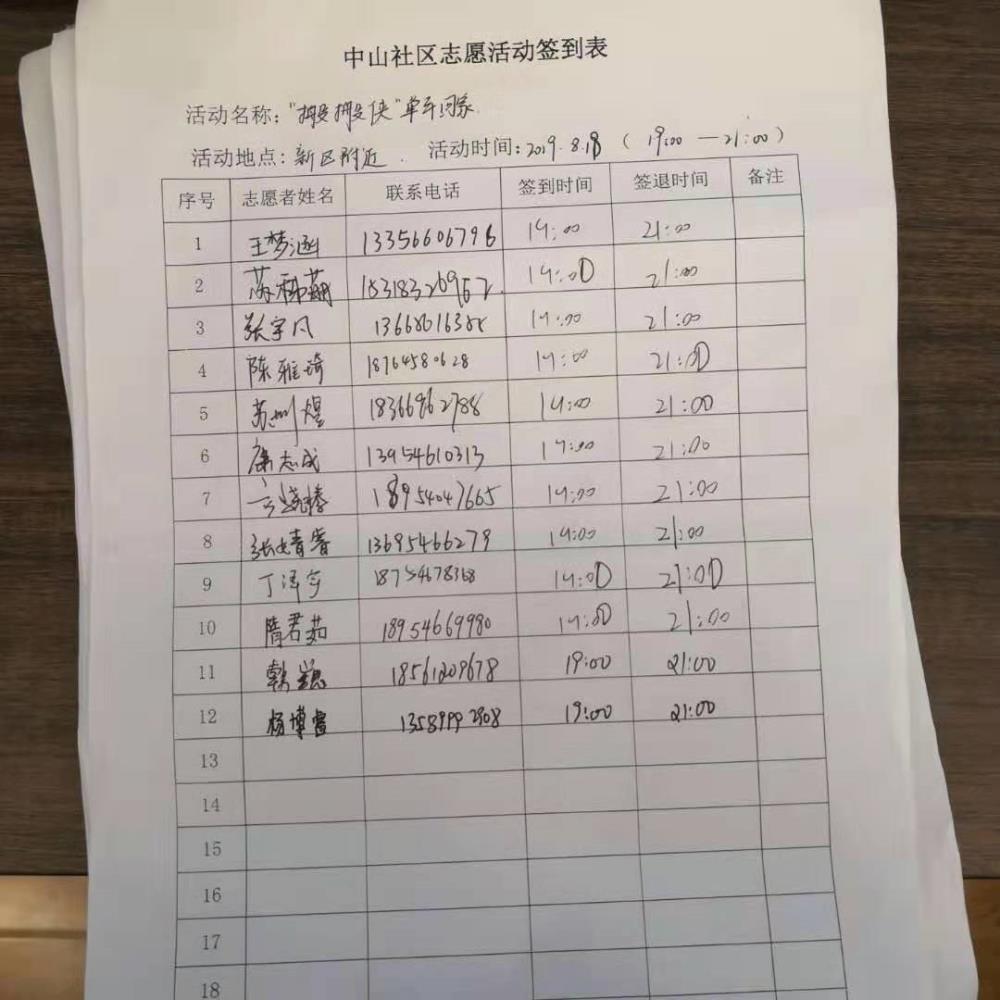 中山社区志愿活动签到表
活动名称："搬搬侠"单车回家
活动地点：新区附近. 活动时间：2019.8.18（19:00—21:00）
序号 志愿者姓名 联系电话 签到时间 签退时间 备注
1 王梦涵 13356606796 19:00 21:00
2 苏 21:00
3 张宇凡 19:00 21:00
4 陈雅琦 18764580628 19:00 21:00
5 苏圳煜 18366962788 19:00 21:00
6 康志成 13954610313 19:00 21:00
7 18954047665 19:00 21:00
8 张婧睿 13695466279 19:00 21:00
9 丁泽宇 18754678368 19:00 21:00
10 隋君茹 18954669980 19:00 21:00
11 韩 18561209678 19:00 21:00
12 杨博睿 13589992908 19:00 21:00
13
14
15
16
17
18